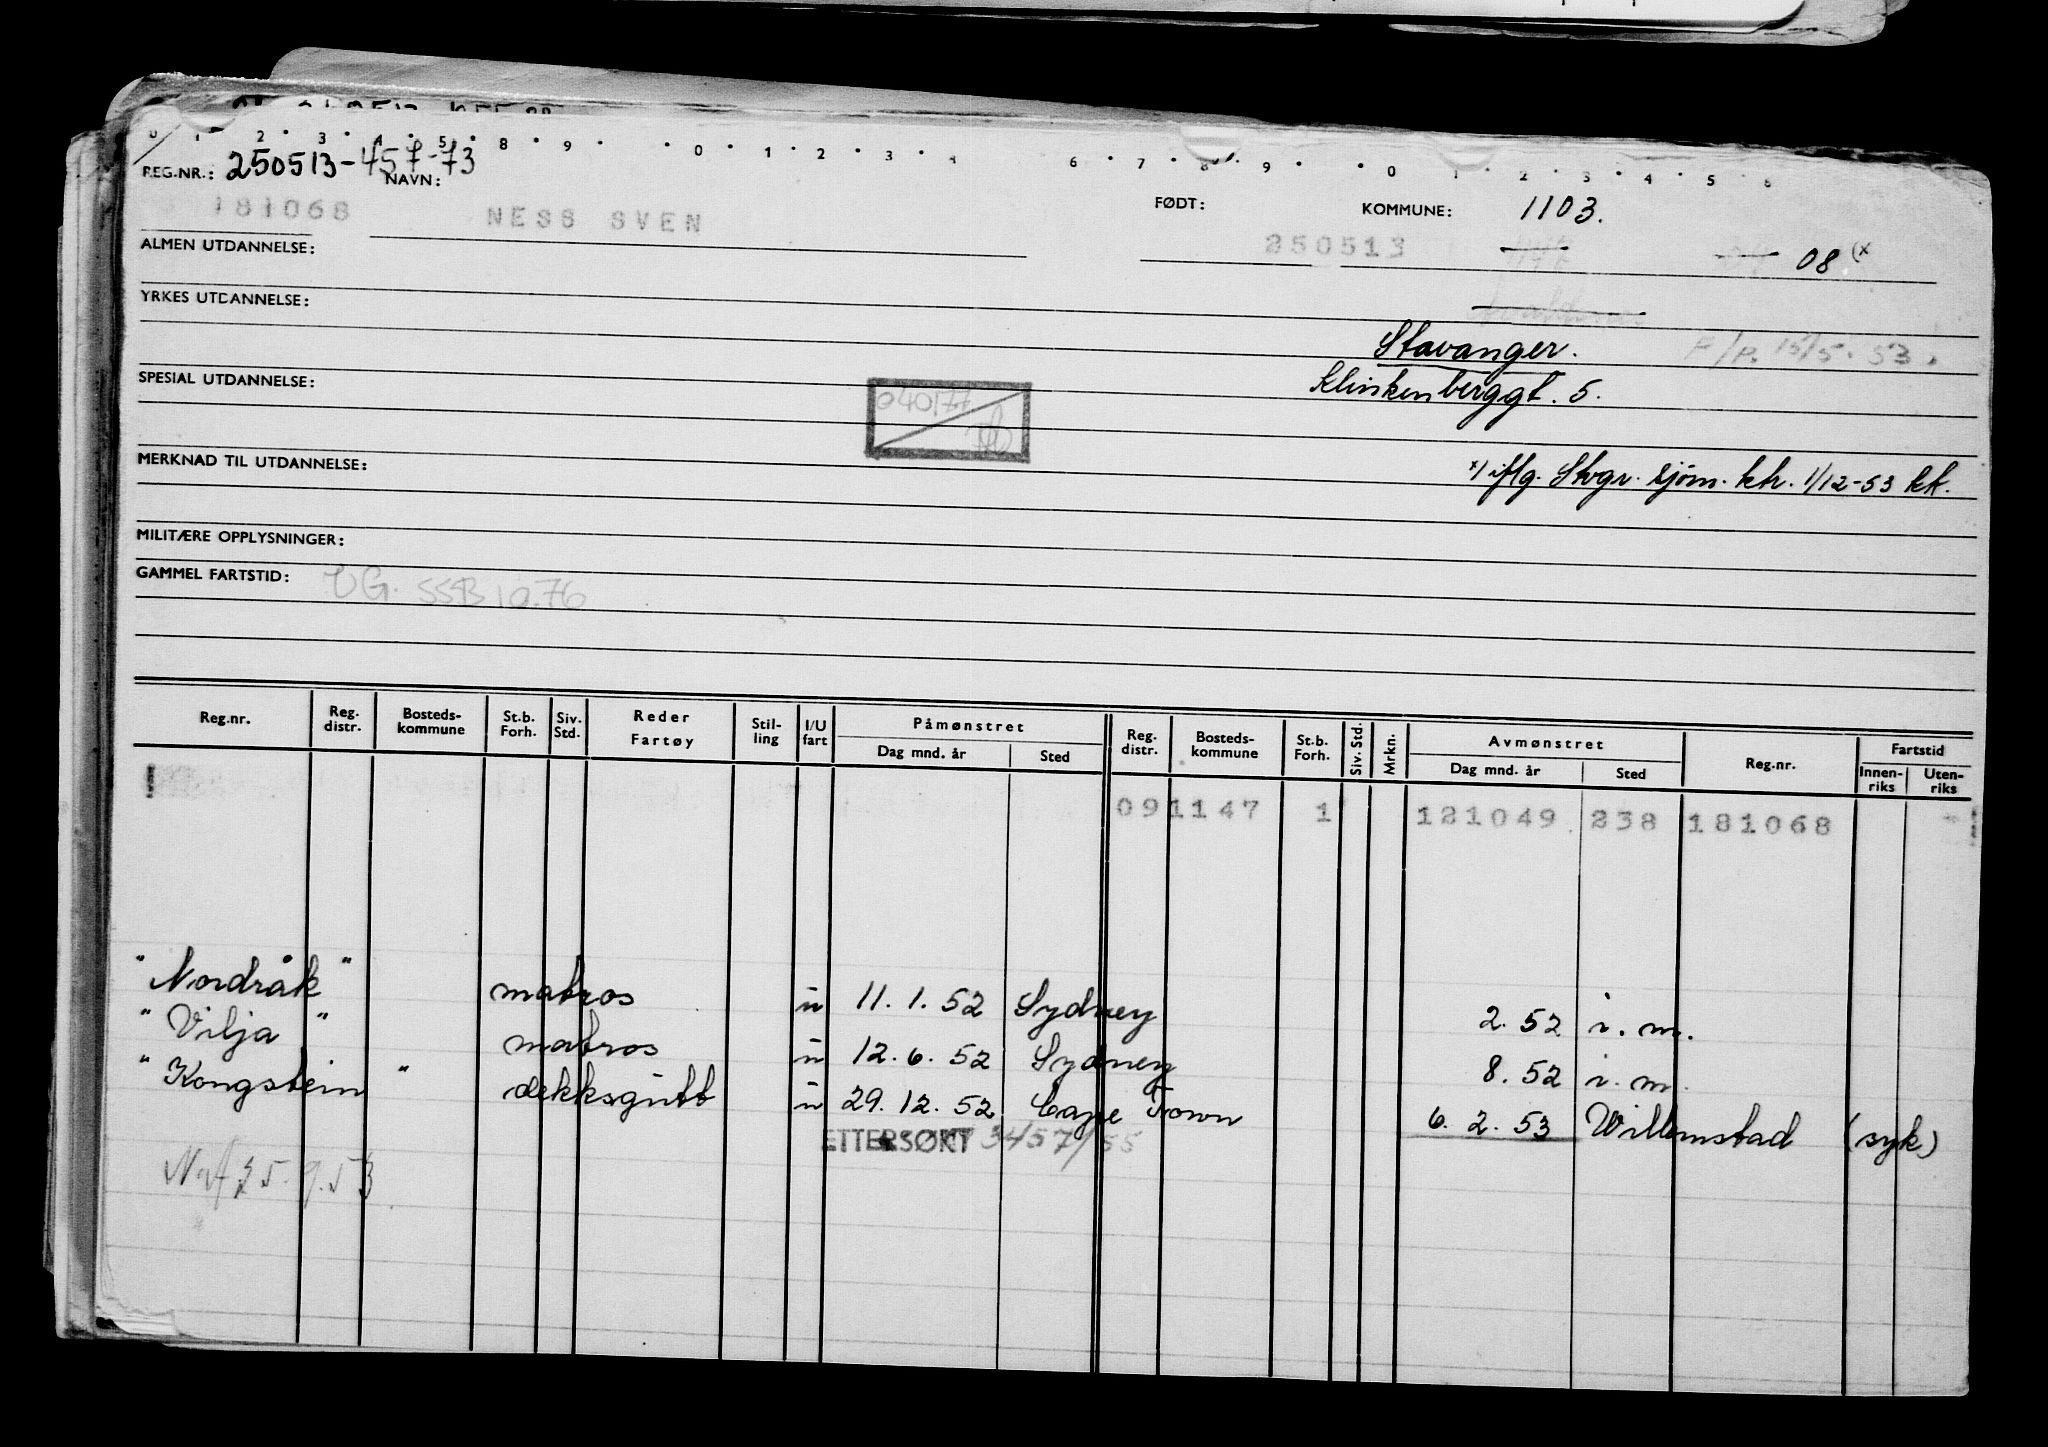 0 1 2 3 4 5 8 9 0 1 2 3 4 6 7 8 9 0 1 2 3 4 5 6
REG.NR.: 250513-457-73
NAVN:
FØDT:
KOMMUNE: 1103.
181068 NESS SVEN 250513
08 (x
ALMEN UTDANNELSE:
YRKES UTDANNELSE:
Stavanger. F/P. 15/5. 53.
Klinkenberggt. 5.
SPESIAL UTDANNELSE:
040177
MERKNAD TIL UTDANNELSE:
x) iflg. Stvgr. sjøm. ktr. 1/12-53 kk.
MILITÆRE OPPLYSNINGER:
GAMMEL FARTSTID: UG. SSB 10.76
Reg.nr. Reg. distr. Bosteds- kommune St.b. Forh. Siv. Std. Reder Fartøy Stil- ling I/U fart Påmønstret Dag mnd. år Sted Reg. distr. Bosteds- kommune St.b. Forh. Siv. Std. Mrkn. Avmønstret Dag mnd. år Sted Reg.nr. Fartstid Innen- riks Uten- riks
091147 1 121049 238 181068
"Nordråk" matros u 11. 1. 52 Sydney 2. 52 i. m.
"Vilja" matros u 12. 6. 52 Sydney 8. 52 i. m.
"Kongstein" dekksgutt u 29. 12. 52 Cape Town 6. 2. 53 Willemstad (syk)
ETTERSØKT 3457/55